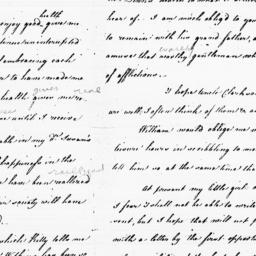 health
enjoy good, give me
uninterrupted
embracing each
to have made me
gives real
health given me re
until I receive
able in my Dr Swain's
happiness in the
received
have been realized
society will have
d.
which Kitty tells me
hear of. I am much obliged to you
to remain with her grand father, a
amuse that worthy gentleman
of afflictions.
I hope uncle Clarkson
are well, I often think of them &
William would oblige me
leisure hours in scribbling to me
tell him so at the same time tha
At present my little girl
I fear I shall not be able to write
went, but I hope that will not p
with a letter by the first opportu